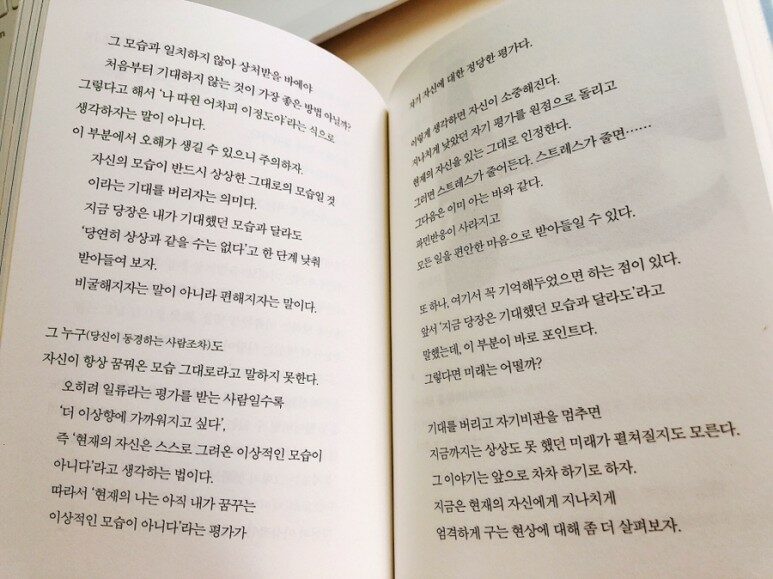 그 모습과 일치하지 않아 상처받을 바에야
처음부터 기대하지 않는 것이 가장 좋은 방법 아닐까?
그렇다고 해서 ‘나 따윈 어차피 이정도야’라는 식으로
생각하자는 말이 아니다.
이 부분에서 오해가 생길 수 있으니 주의하자.
자신의 모습이 반드시 상상한 그대로의 모습일 것
이라는 기대를 버리자는 의미다.
지금 당장은 내가 기대했던 모습과 달라도
‘당연히 상상과 같을 수는 없다’고 한 단계 낮춰
받아들여 보자.
비굴해지자는 말이 아니라 편해지자는 말이다.
그 누구(당신이 동경하는 사람조차)도
자신이 항상 꿈꿔온 모습 그대로라고 말하지 못한다.
오히려 일류라는 평가를 받는 사람일수록
‘더 이상향에 가까워지고 싶다’,
즉 ‘현재의 자신은 스스로 그려온 이상적인 모습이
아니다’라고 생각하는 법이다.
따라서 ‘현재의 나는 아직 내가 꿈꾸는
이상적인 모습이 아니다’라는 평가가
자기 자신에 대한 정당한 평가다.
이렇게 생각하면 자신이 소중해진다.
지나치게 낮았던 자기 평가를 원점으로 돌리고
현재의 자신을 있는 그대로 인정한다.
그러면 스트레스가 줄어든다. 스트레스가 줄면……
그다음은 이미 아는 바와 같다.
과민반응이 사라지고
모든 일을 편안한 마음으로 받아들일 수 있다.
또 하나, 여기서 꼭 기억해두었으면 하는 점이 있다.
앞서 ‘지금 당장은 기대했던 모습과 달라도’라고
말했는데, 이 부분이 바로 포인트다.
그렇다면 미래는 어떨까?
기대를 버리고 자기비판을 멈추면
지금까지는 상상도 못 했던 미래가 펼쳐질지도 모른다.
그 이야기는 앞으로 차차 하기로 하자.
지금은 현재의 자신에게 지나치게
엄격하게 구는 현상에 대해 좀 더 살펴보자.